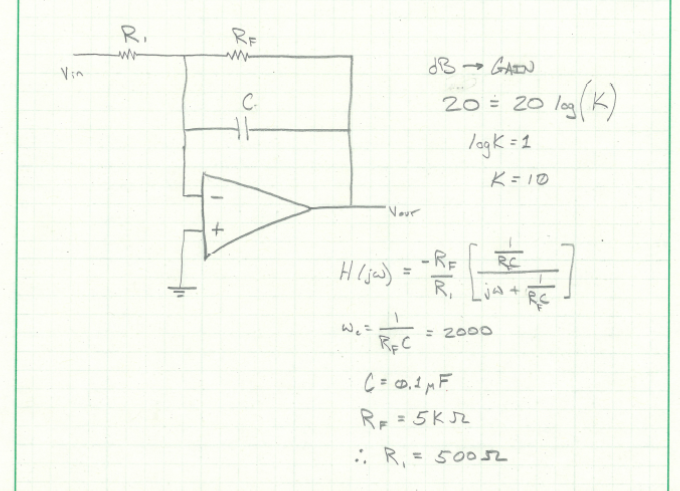 R₁
R_F
Vin
C
−
+
Vout
dB → GAIN
20 = 20 log(K)
log K = 1
K = 10
H(jω) = -R_F/R₁ [ (1/R_FC) / (jω + 1/R_FC) ]
ω_c = 1/(R_FC) = 2000
C = 0.1 μF
R_F = 5K Ω
∴ R₁ = 500 Ω